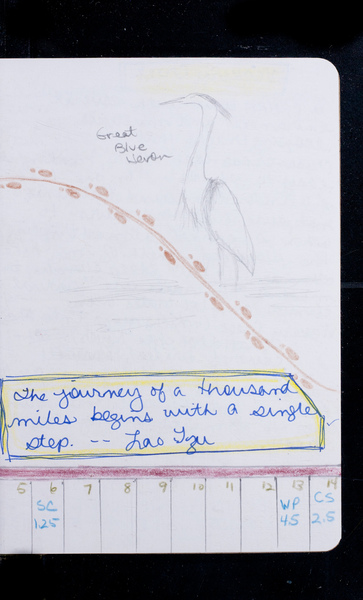 Great
Blue
Heron
The journey of a thousand
miles begins with a single
step. -- Lao Tzu
5 6 7 8 9 10 11 12 13 14
SC WP CS
125 45 2.5